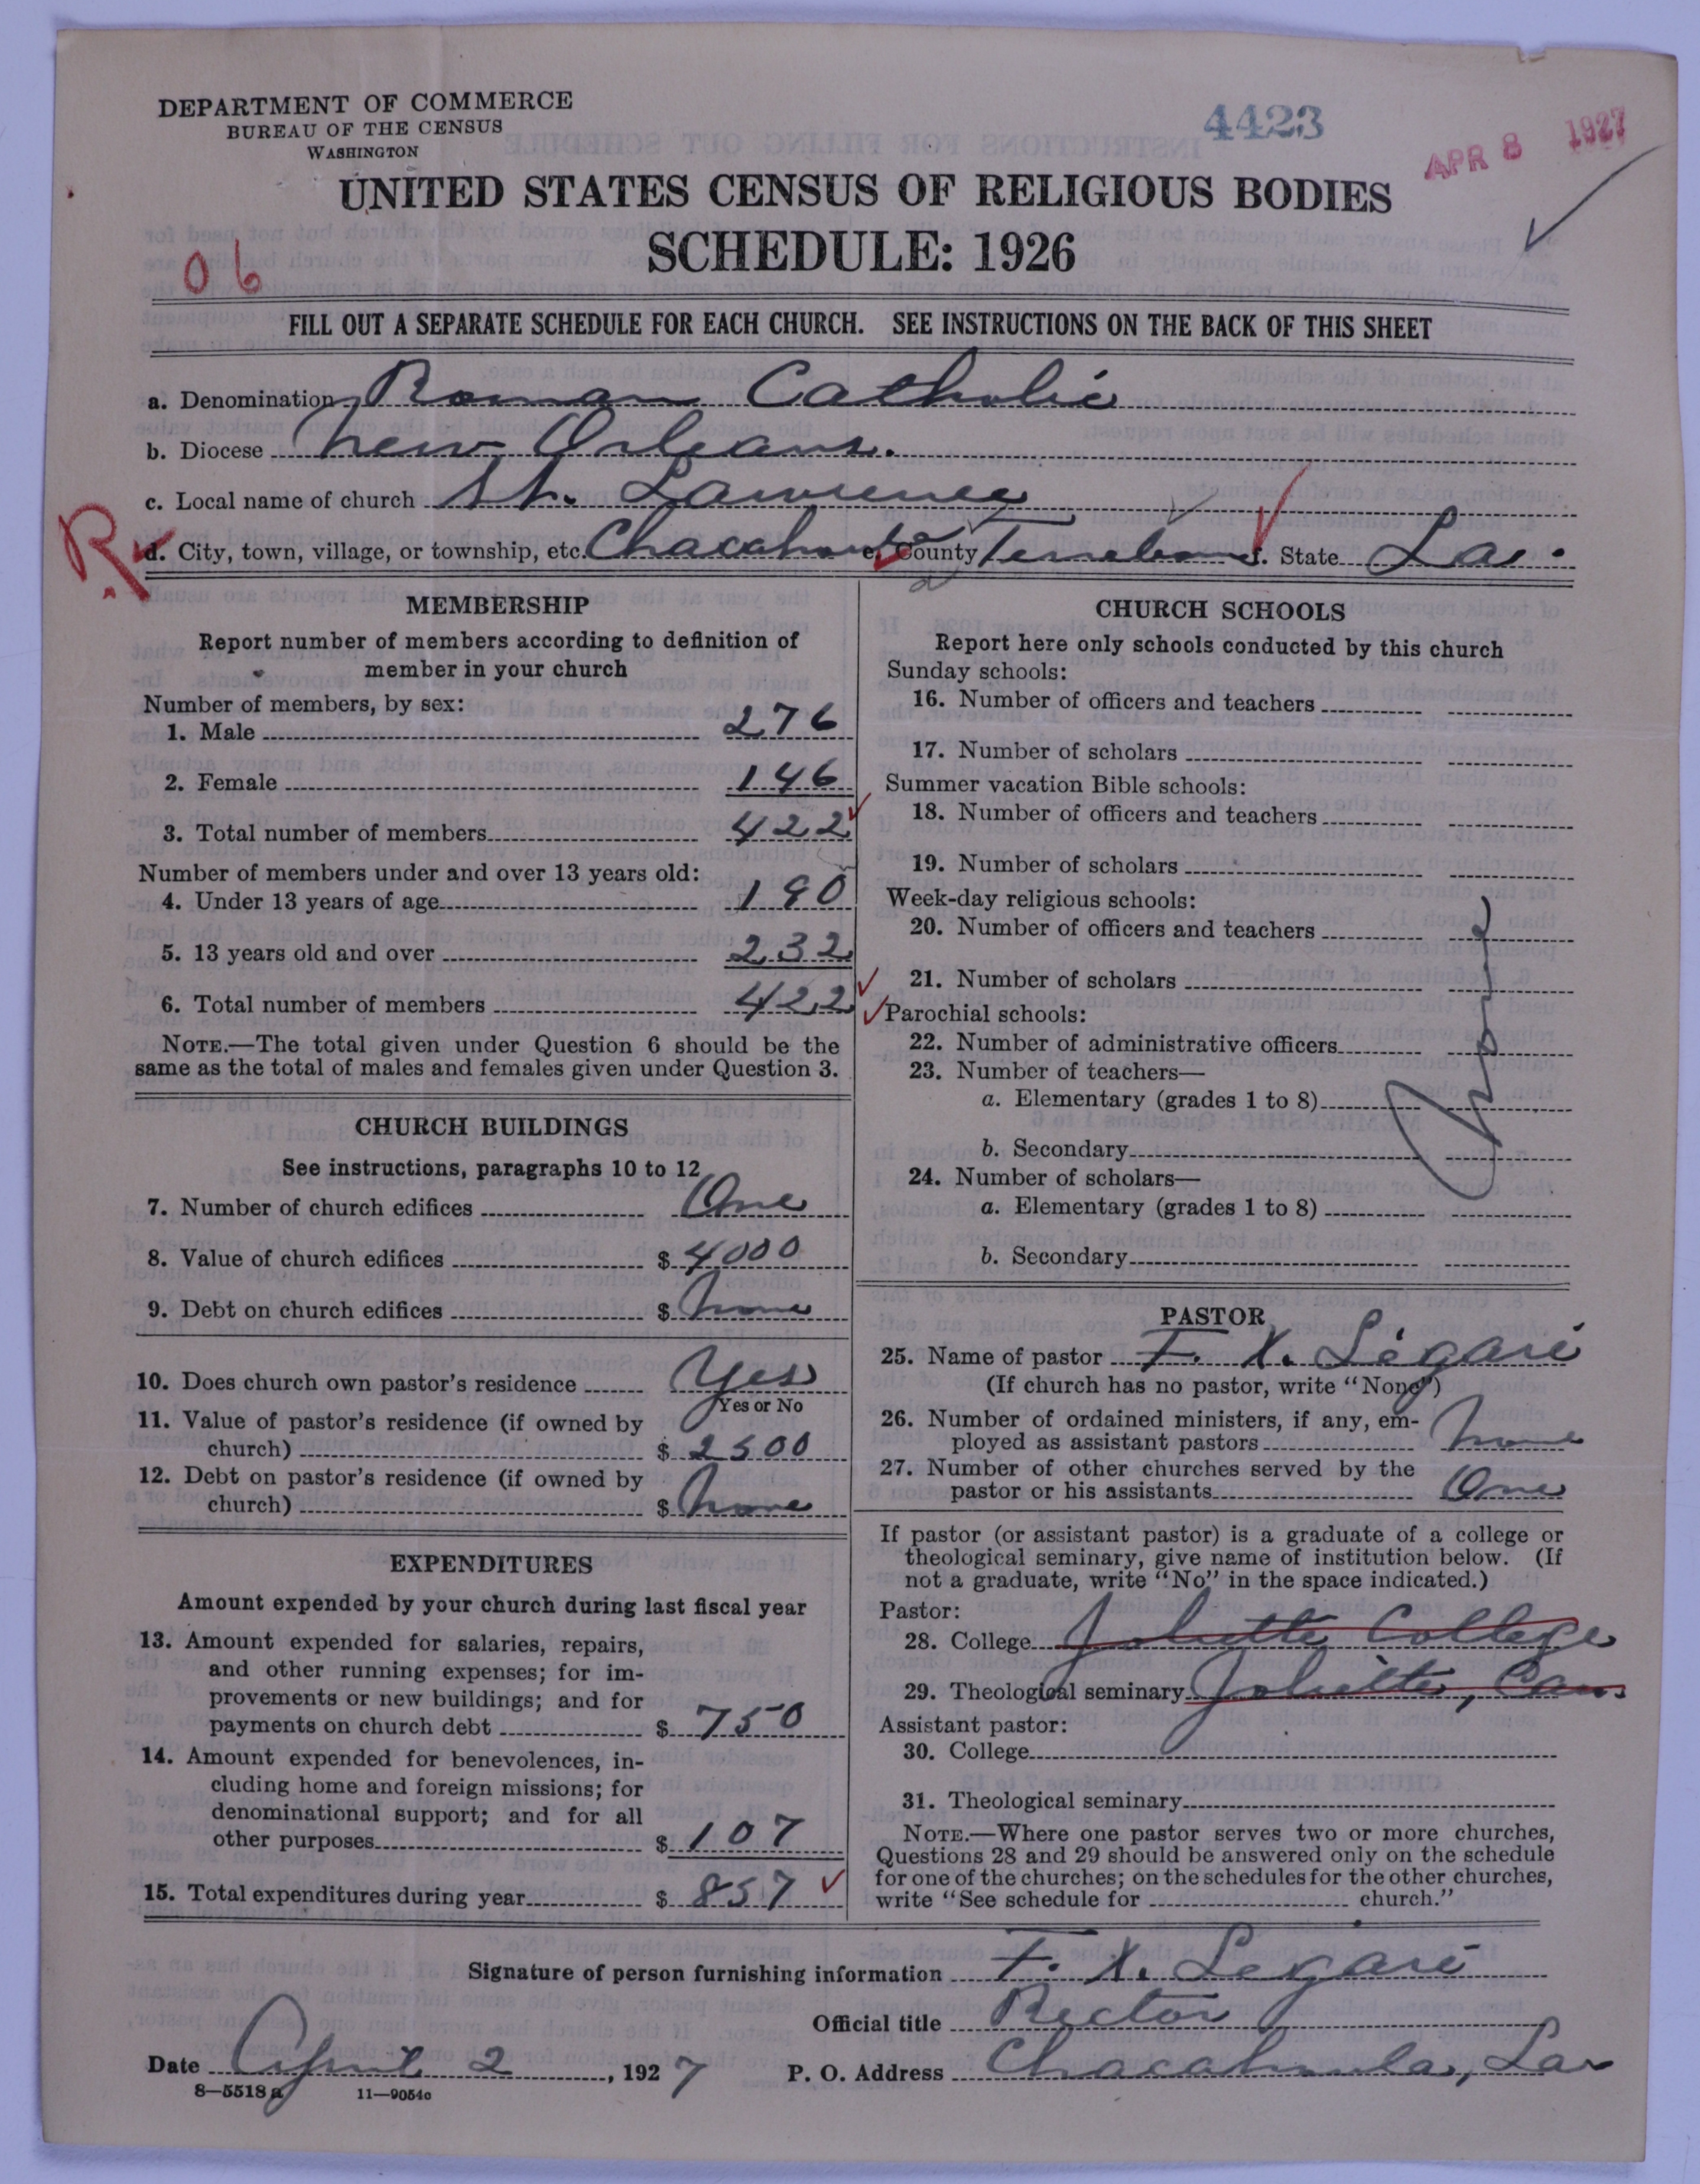 DEPARTMENT OF COMMERCE
BUREAU OF THE CENSUS
WASHINGTON
4423
APR 8 1927
UNITED STATES CENSUS OF RELIGIOUS BODIES
SCHEDULE: 1926
06
FILL OUT A SEPARATE SCHEDULE FOR EACH CHURCH. SEE INSTRUCTIONS ON THE BACK OF THIS SHEET
a. Denomination Roman Catholic
b. Diocese New Orleans.
c. Local name of church St. Lawrence
R
d. City, town, village, or township, etc. Chacahoula e. County Terrebonne f. State La.
MEMBERSHIP
Report number of members according to definition of
member in your church
Number of members, by sex:
1. Male 276
2. Female 146
3. Total number of members 422
Number of members under and over 13 years old:
4. Under 13 years of age 190
5. 13 years old and over 232
6. Total number of members 422
NOTE.—The total given under Question 6 should be the
same as the total of males and females given under Question 3.
CHURCH BUILDINGS
See instructions, paragraphs 10 to 12
7. Number of church edifices One
8. Value of church edifices $ 4000
9. Debt on church edifices $ None
10. Does church own pastor's residence Yes
Yes or No
11. Value of pastor's residence (if owned by
church) $ 2500
12. Debt on pastor's residence (if owned by
church) $ None
EXPENDITURES
Amount expended by your church during last fiscal year
13. Amount expended for salaries, repairs,
and other running expenses; for im-
provements or new buildings; and for
payments on church debt $ 750
14. Amount expended for benevolences, in-
cluding home and foreign missions; for
denominational support; and for all
other purposes $ 107
15. Total expenditures during year $ 857
CHURCH SCHOOLS
Report here only schools conducted by this church
Sunday schools:
16. Number of officers and teachers
17. Number of scholars
Summer vacation Bible schools:
18. Number of officers and teachers
19. Number of scholars
Week-day religious schools:
20. Number of officers and teachers
21. Number of scholars
Parochial schools:
22. Number of administrative officers
23. Number of teachers—
a. Elementary (grades 1 to 8)
b. Secondary
24. Number of scholars—
a. Elementary (grades 1 to 8)
b. Secondary
PASTOR
25. Name of pastor F. X. Légaré
(If church has no pastor, write "None")
26. Number of ordained ministers, if any, em-
ployed as assistant pastors None
27. Number of other churches served by the
pastor or his assistants One
If pastor (or assistant pastor) is a graduate of a college or
theological seminary, give name of institution below. (If
not a graduate, write "No" in the space indicated.)
Pastor:
28. College Joliette College
29. Theological seminary Joliette, Can.
Assistant pastor:
30. College
31. Theological seminary
NOTE.—Where one pastor serves two or more churches,
Questions 28 and 29 should be answered only on the schedule
for one of the churches; on the schedules for the other churches,
write "See schedule for church."
Signature of person furnishing information F. X. Légaré
Official title Rector
Date April 2, 1927 P. O. Address Chacahoula, La
8—5518a 11—9054c